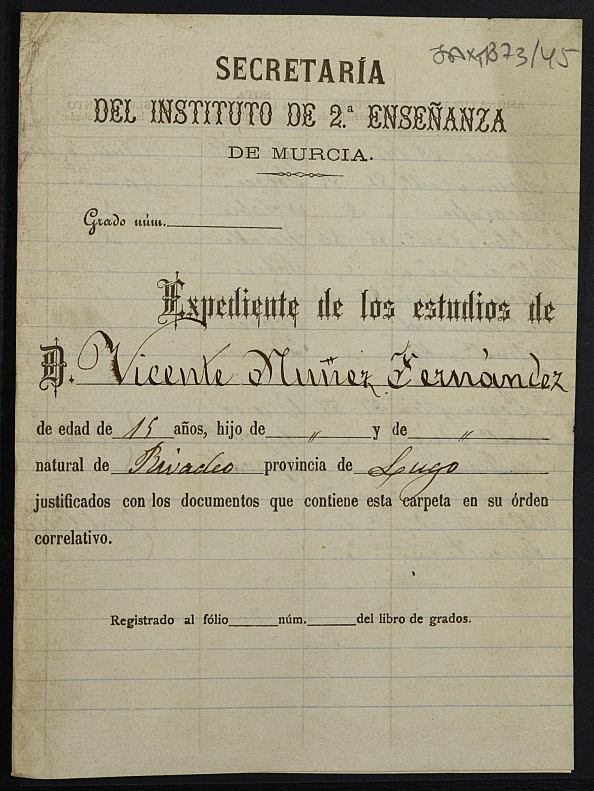 JAX,873/45
SECRETARÍA
DEL INSTITUTO DE 2.ª ENSEÑANZA
DE MURCIA.
Grado núm.
Expediente de los estudios de
D. Vicente Nuñez Fernández
de edad de 15 años, hijo de " y de "
natural de Rivadeo provincia de Lugo
justificados con los documentos que contiene esta carpeta en su órden
correlativo.
Registrado al fólio núm. del libro de grados.